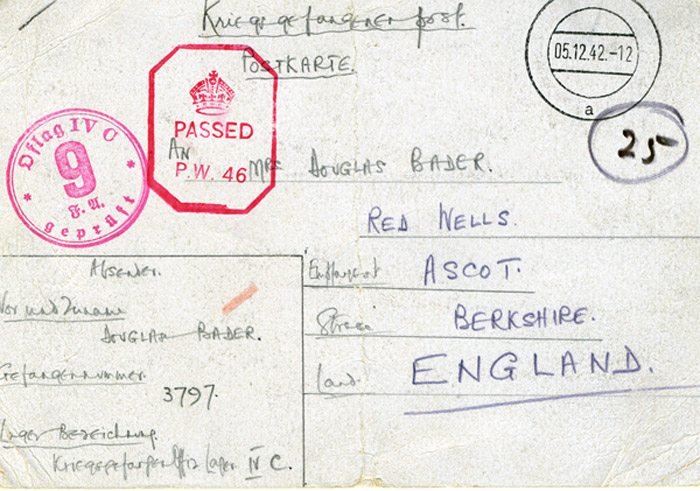 Kriegsgefangenen post.
POSTKARTE.
05.12.42.-12
a
PASSED
P.W. 46
Oflag IV C
9
F. A.
geprüft
25
AN MRS DOUGLAS BADER.
RED WELLS.
ASCOT.
Strasse BERKSHIRE.
Land. ENGLAND.
Absender.
Vor und Zuname
DOUGLAS BADER.
Gefangennummer.
3797.
Lager Bezeichnung.
Kriegsgefangen Offiz Lager IV C.